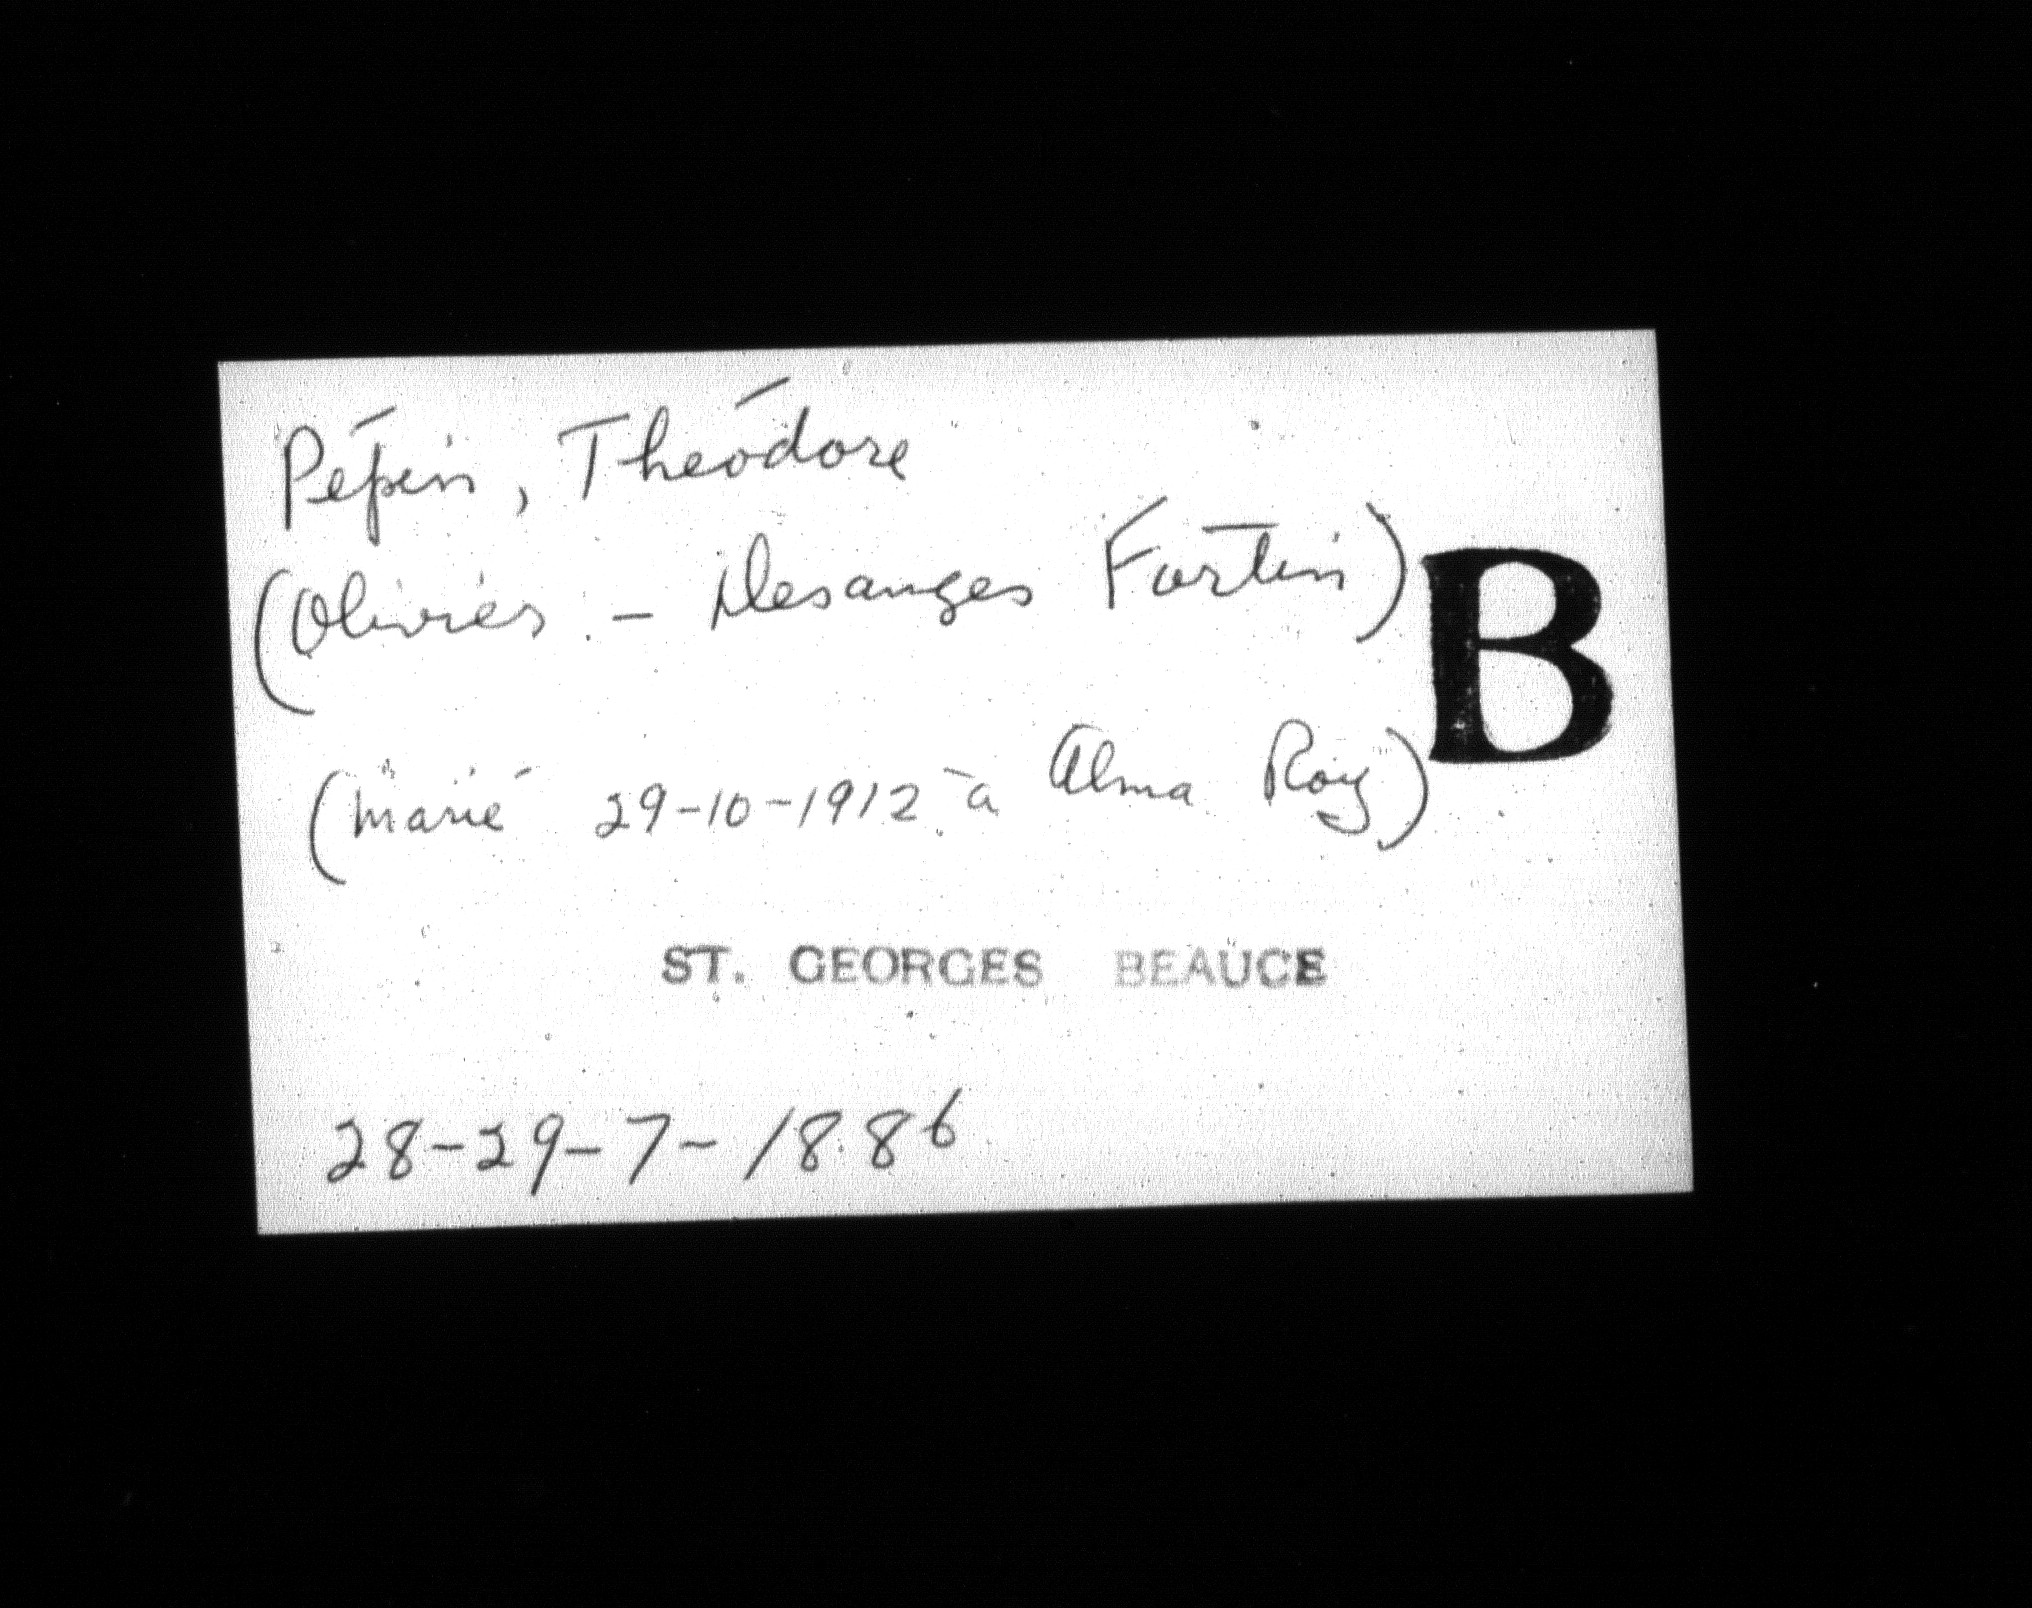 Pépin, Théodore
(Olivier - Desanges Fortin)
B
(marié 29-10-1912 à Alma Roy)
ST. GEORGES BEAUCE
28-29-7-1886